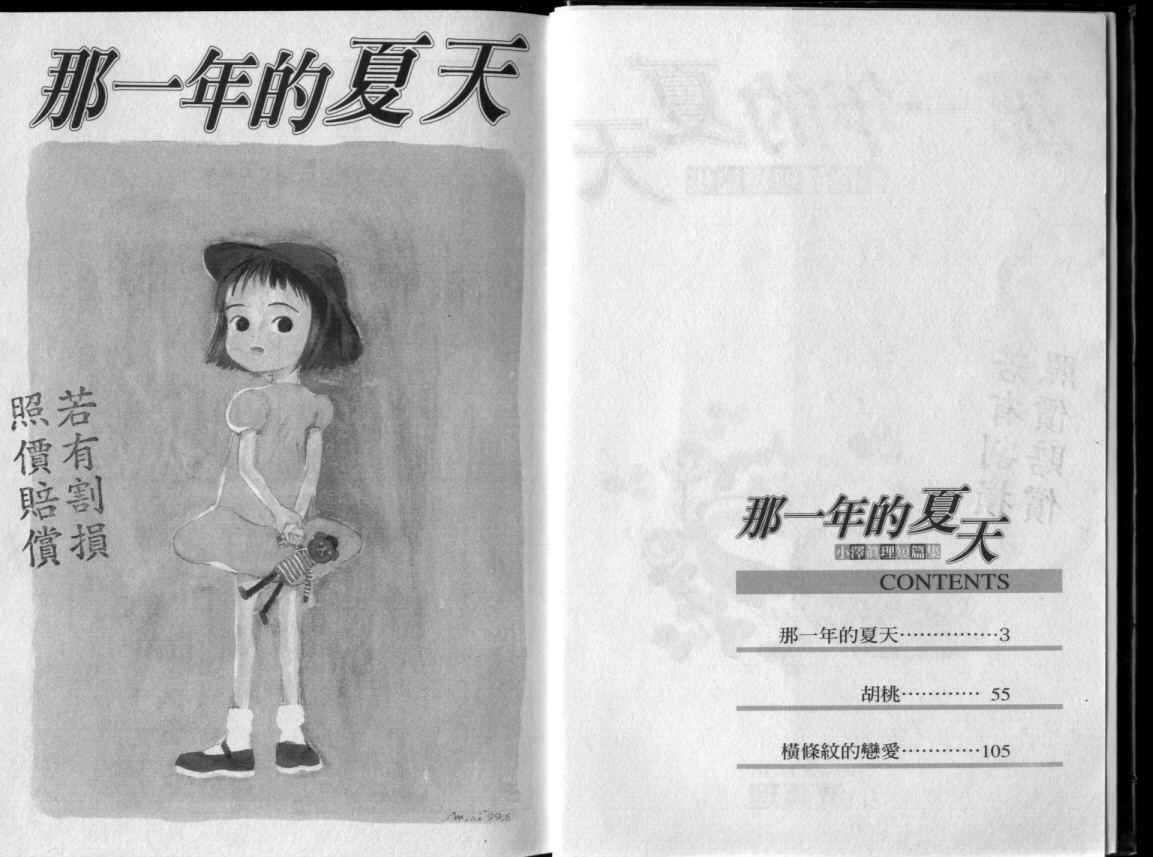 那一年的夏天
若有割損
照價賠償
mari '99.6
那一年的夏天
小澤真理短篇集
CONTENTS
那一年的夏天……………3
胡桃………… 55
橫條紋的戀愛…………105